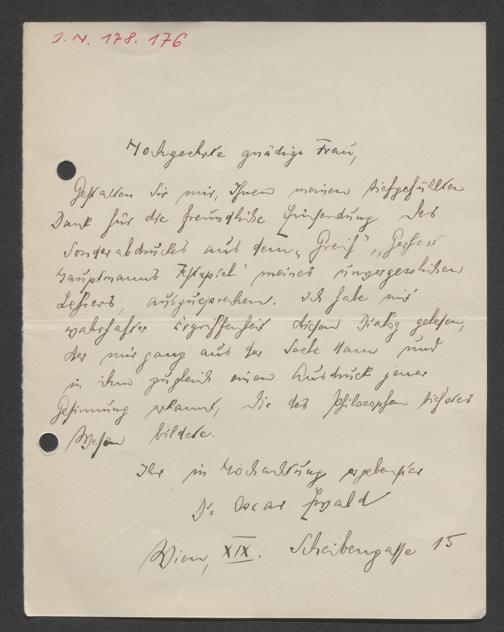 I.N. 178.176
Hochgeehrte gnädige Frau,
Gestatten Sie mir, Ihnen meinen tiefgefühlten
Dank für die freundliche Zusendung des
Sonderabdruckes aus dem „Greif“, „Gerhart
Hauptmanns Festspiel“ meines unvergesslichen
Lehrers, auszusprechen. Ich habe mit
wahrhafter Ergriffenheit diesen Dialog gelesen,
der mir ganz aus der Seele kam und
in ihm zugleich einen Ausdruck jener
Gesinnung erkannt, die des Philosophen tiefstes
Wesen bildete.
Ihr in Hochachtung ergebenster
Dr. Oscar Ewald
Wien, XIX. Scheibengasse 15